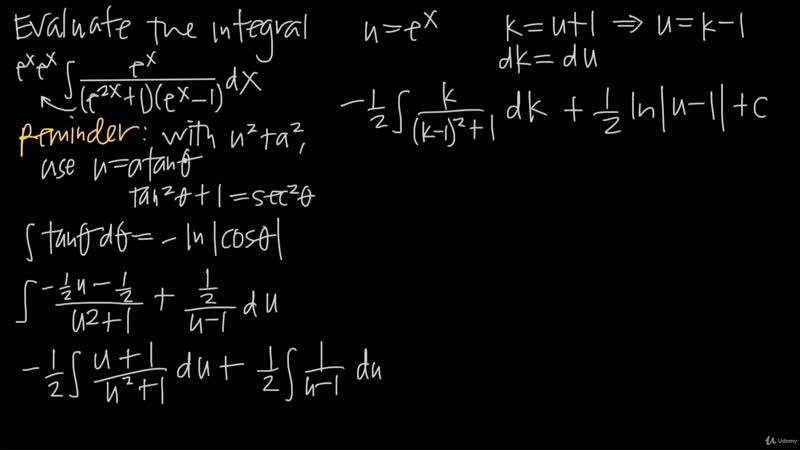 Evaluate the integral
e^x e^x ∫ e^x/((e^{2x}+1)(e^x-1)) dx
Reminder: with u²+a²,
use u=a tanθ
tan²θ+1=sec²θ
∫ tanθ dθ = -ln|cosθ|
∫ (-½u-½)/(u²+1) + ½/(u-1) du
-½ ∫ (u+1)/(u²+1) du + ½ ∫ 1/(u-1) du
u=e^x
k=u+1 ⇒ u=k-1
dk=du
-½ ∫ k/((k-1)²+1) dk + ½ ln|u-1|+c
Udemy